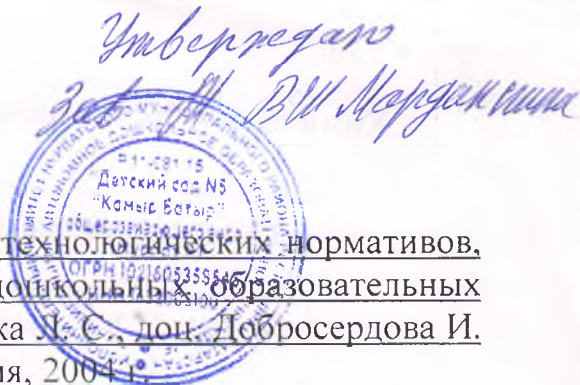 Утверждаю
Зав. В Ш Марданшина
Детский сад №5
"Камыр Батыр"
общеразвивающего вида
ОГРН
технологических нормативов,
дошкольных образовательных
ка Л. С., доц. Добросердова И.
ия, 2004 г.